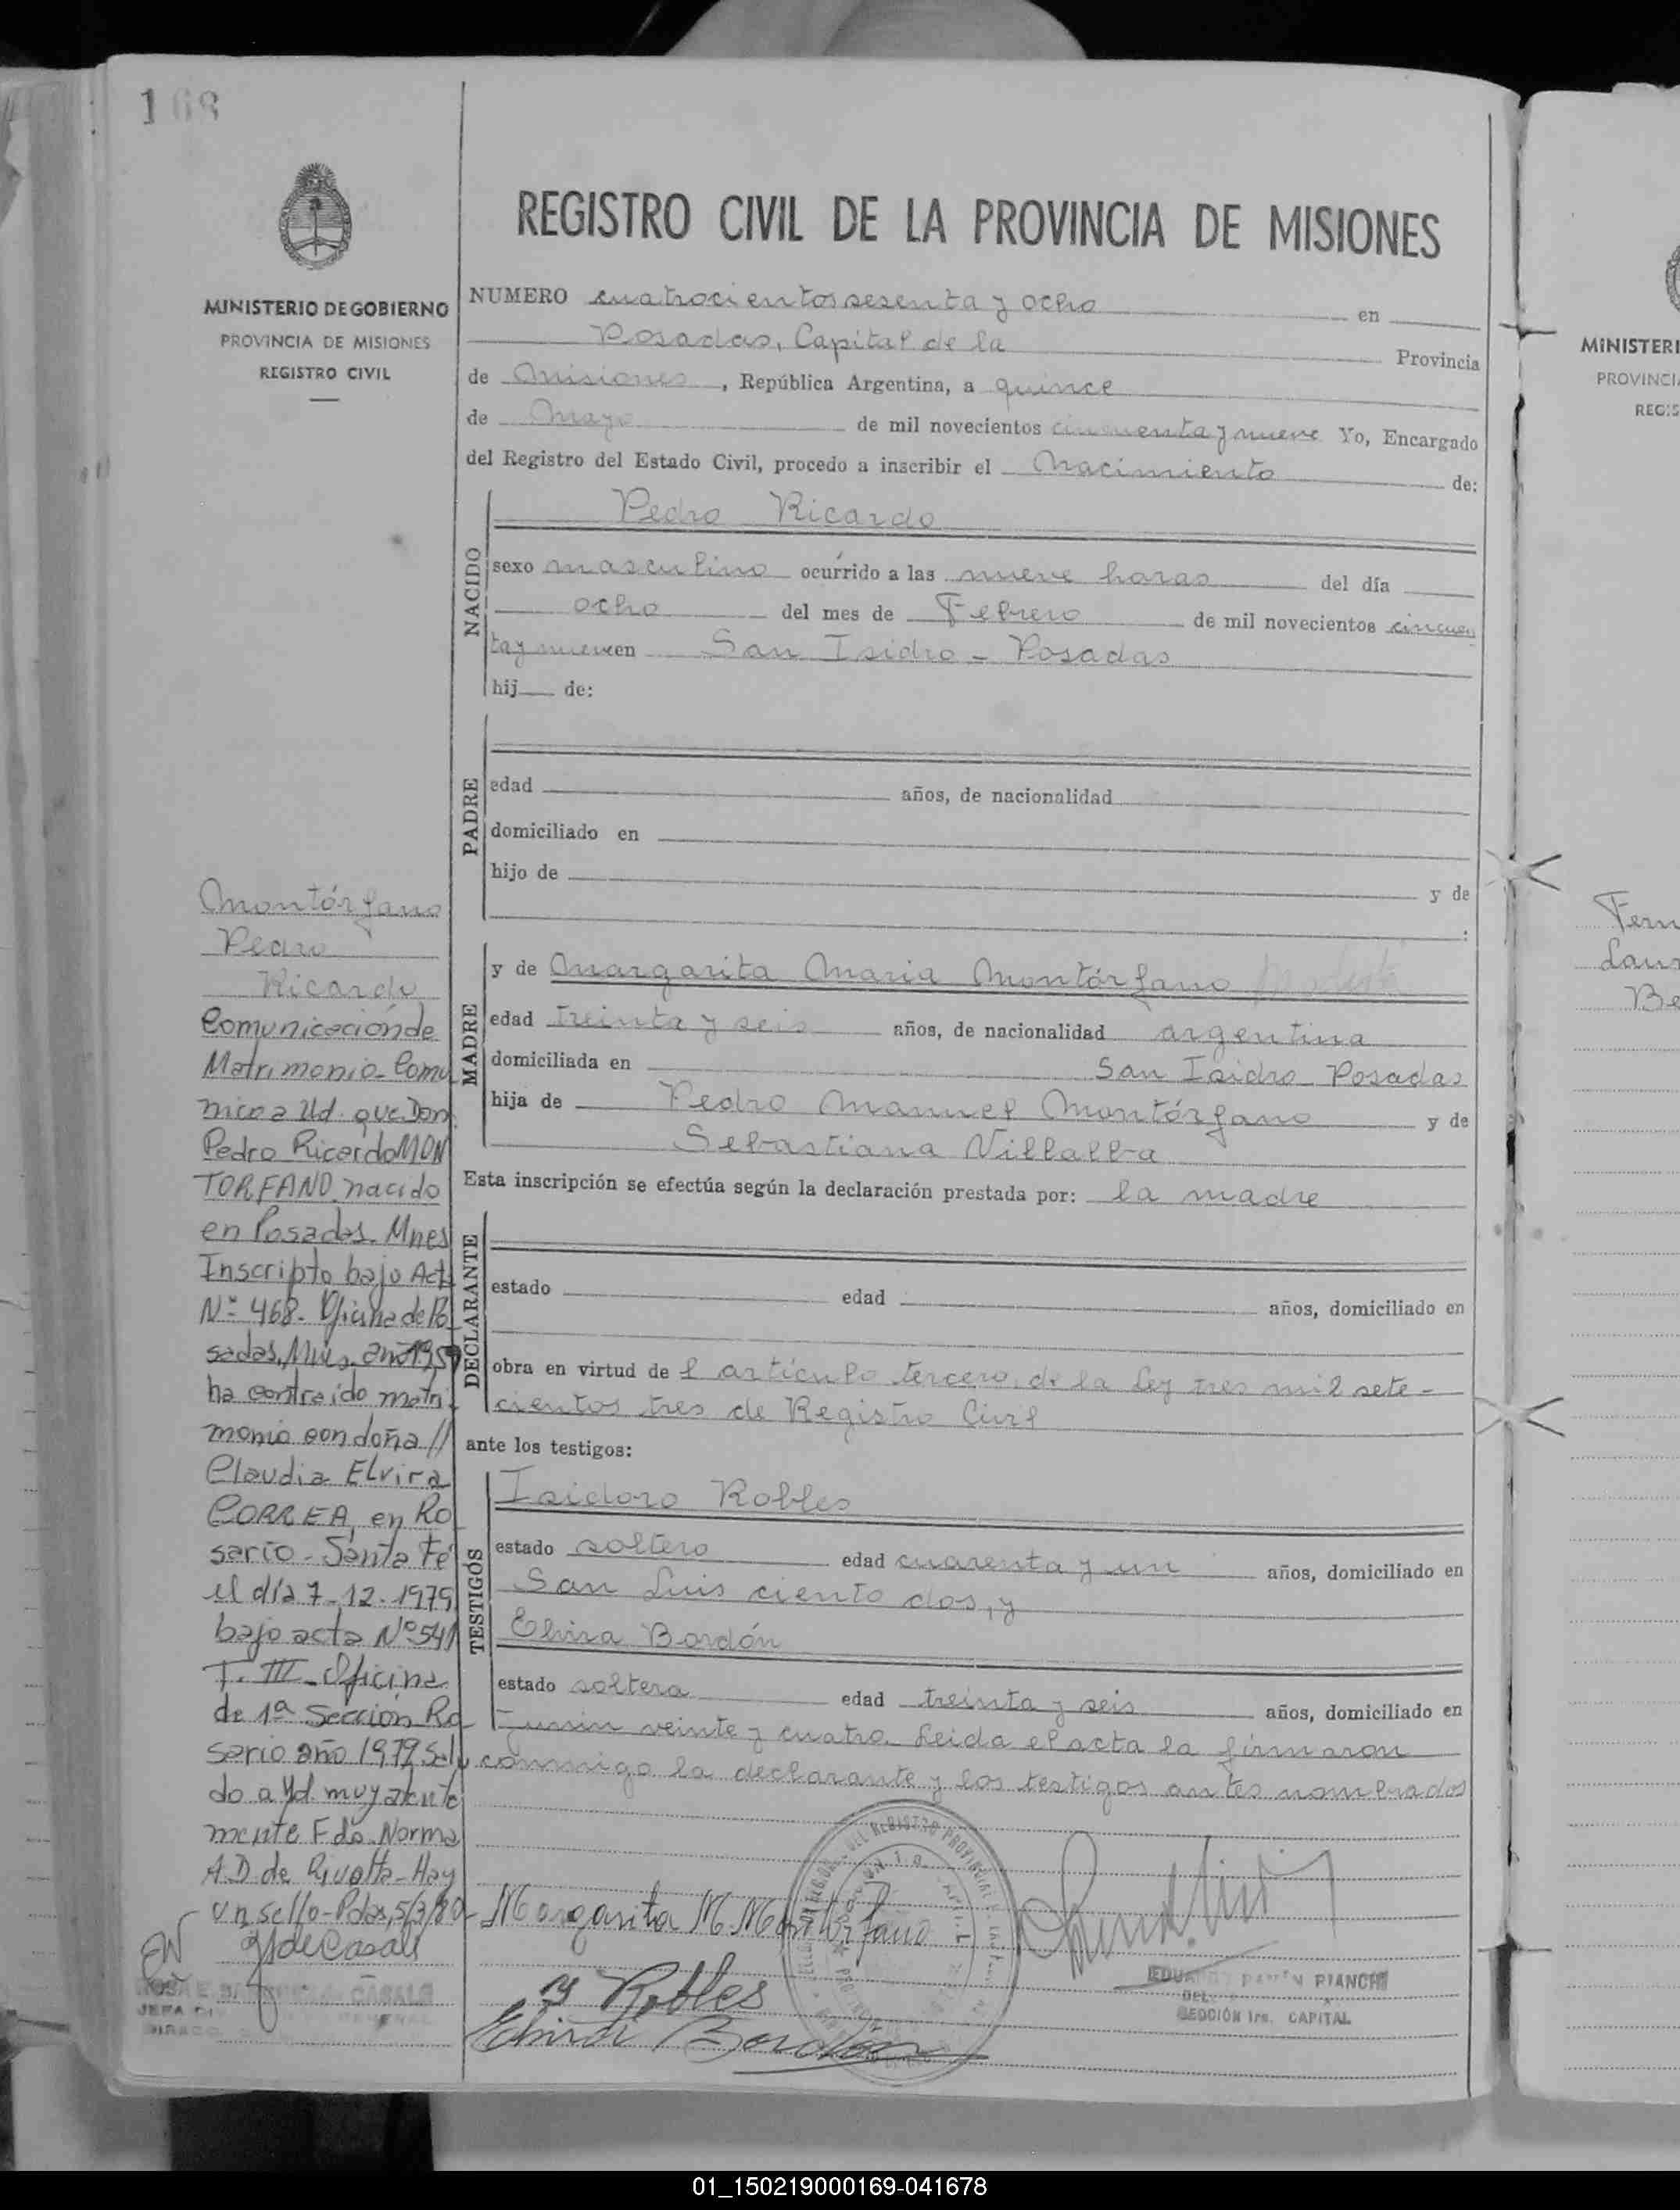 168
MINISTERIO DE GOBIERNO
PROVINCIA DE MISIONES
REGISTRO CIVIL
REGISTRO CIVIL DE LA PROVINCIA DE MISIONES
NUMERO cuatrocientos sesenta y ocho en
Posadas, Capital de la Provincia
de Misiones, República Argentina, a quince
de Mayo de mil novecientos cincuenta y nueve Yo, Encargado
del Registro del Estado Civil, procedo a inscribir el Nacimiento de:
NACIDO
Pedro Ricardo
sexo masculino ocurrido a las nueve horas del día
ocho del mes de Febrero de mil novecientos cincuen
ta y nueve en San Isidro - Posadas
hij de:
PADRE
edad años, de nacionalidad
domiciliado en
hijo de y de
:
MADRE
y de Margarita Maria Montórfano
edad treinta y seis años, de nacionalidad argentina
domiciliada en San Isidro Posadas
hija de Pedro Manuel Montórfano y de
Sebastiana Villalba
Esta inscripción se efectúa según la declaración prestada por: la madre
DECLARANTE
estado edad años, domiciliado en
obra en virtud de l artículo tercero de la ley tres mil sete-
cientos tres de Registro Civil
ante los testigos:
TESTIGOS
Isidoro Robles
estado soltero edad cuarenta y un años, domiciliado en
San Luis ciento dos, y
Elvira Bordón
estado soltera edad treinta y seis años, domiciliado en
Junín veinte y cuatro. Leida el acta la firmaron
conmigo la declarante y los testigos antes nombrados
Margarita M. Montorfano
Robles
Elvira Bordón
PIANCHI
SECCIÓN 1ra. CAPITAL
Montórfano
Pedro
Ricardo
Comunicación de
Matrimonio-Comu
nico a Ud. que Don
Pedro Ricardo MON
TORFANO nacido
en Posadas. Mnes
Inscripto bajo Acta
Nº 468. Oficina de Po
sadas, Mnes, año 1959
ha contraido matri
monio con doña //
Claudia Elvira
CORREA, en Ro
sario-Santa Fé
el día 7-12-1979
bajo acta Nº 541
T. III-Oficina
de 1ª Sección Ro
sario año 1979. Salu
do a Ud. muy atenta
mente Fdo. Norma
A.D de Rivolta-Hay
un sello-Pdas, 5/3/80
de Casals
CASALS
MINISTERI
PROVINCI
REGIS
Fern
Laur
Be
01_150219000169-041678